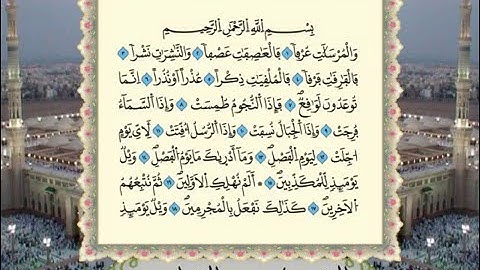 بِسْمِ اللهِ الرَّحْمٰنِ الرَّحِيمِ
وَالْمُرْسَلَاتِ عُرْفاً ١ فَالْعَاصِفَاتِ عَصْفاً ٢ وَالنَّاشِرَاتِ نَشْراً ٣
فَالْفَارِقَاتِ فَرْقاً ٤ فَالْمُلْقِيَاتِ ذِكْراً ٥ عُذْراً اَوْ نُذْراً ٦ اِنَّمَا
تُوعَدُونَ لَوَاقِعٌ ٧ فَاِذَا النُّجُومُ طُمِسَتْ ٨ وَاِذَا السَّمَٓاءُ
فُرِجَتْ ٩ وَاِذَا الْجِبَالُ نُسِفَتْ ١٠ وَاِذَا الرُّسُلُ اُقِّتَتْ ١١ لِاَيِّ يَوْمٍ
اُجِّلَتْ ١٢ لِيَوْمِ الْفَصْلِ ١٣ وَمَٓا اَدْرٰيكَ مَا يَوْمُ الْفَصْلِ ١٤ وَيْلٌ
يَوْمَئِذٍ لِلْمُكَذِّبِينَ ١٥ اَلَمْ نُهْلِكِ الْاَوَّلِينَ ١٦ ثُمَّ نُتْبِعُهُمُ
الْاٰخِرِينَ ١٧ كَذٰلِكَ نَفْعَلُ بِالْمُجْرِمِينَ ١٨ وَيْلٌ يَوْمَئِذٍ